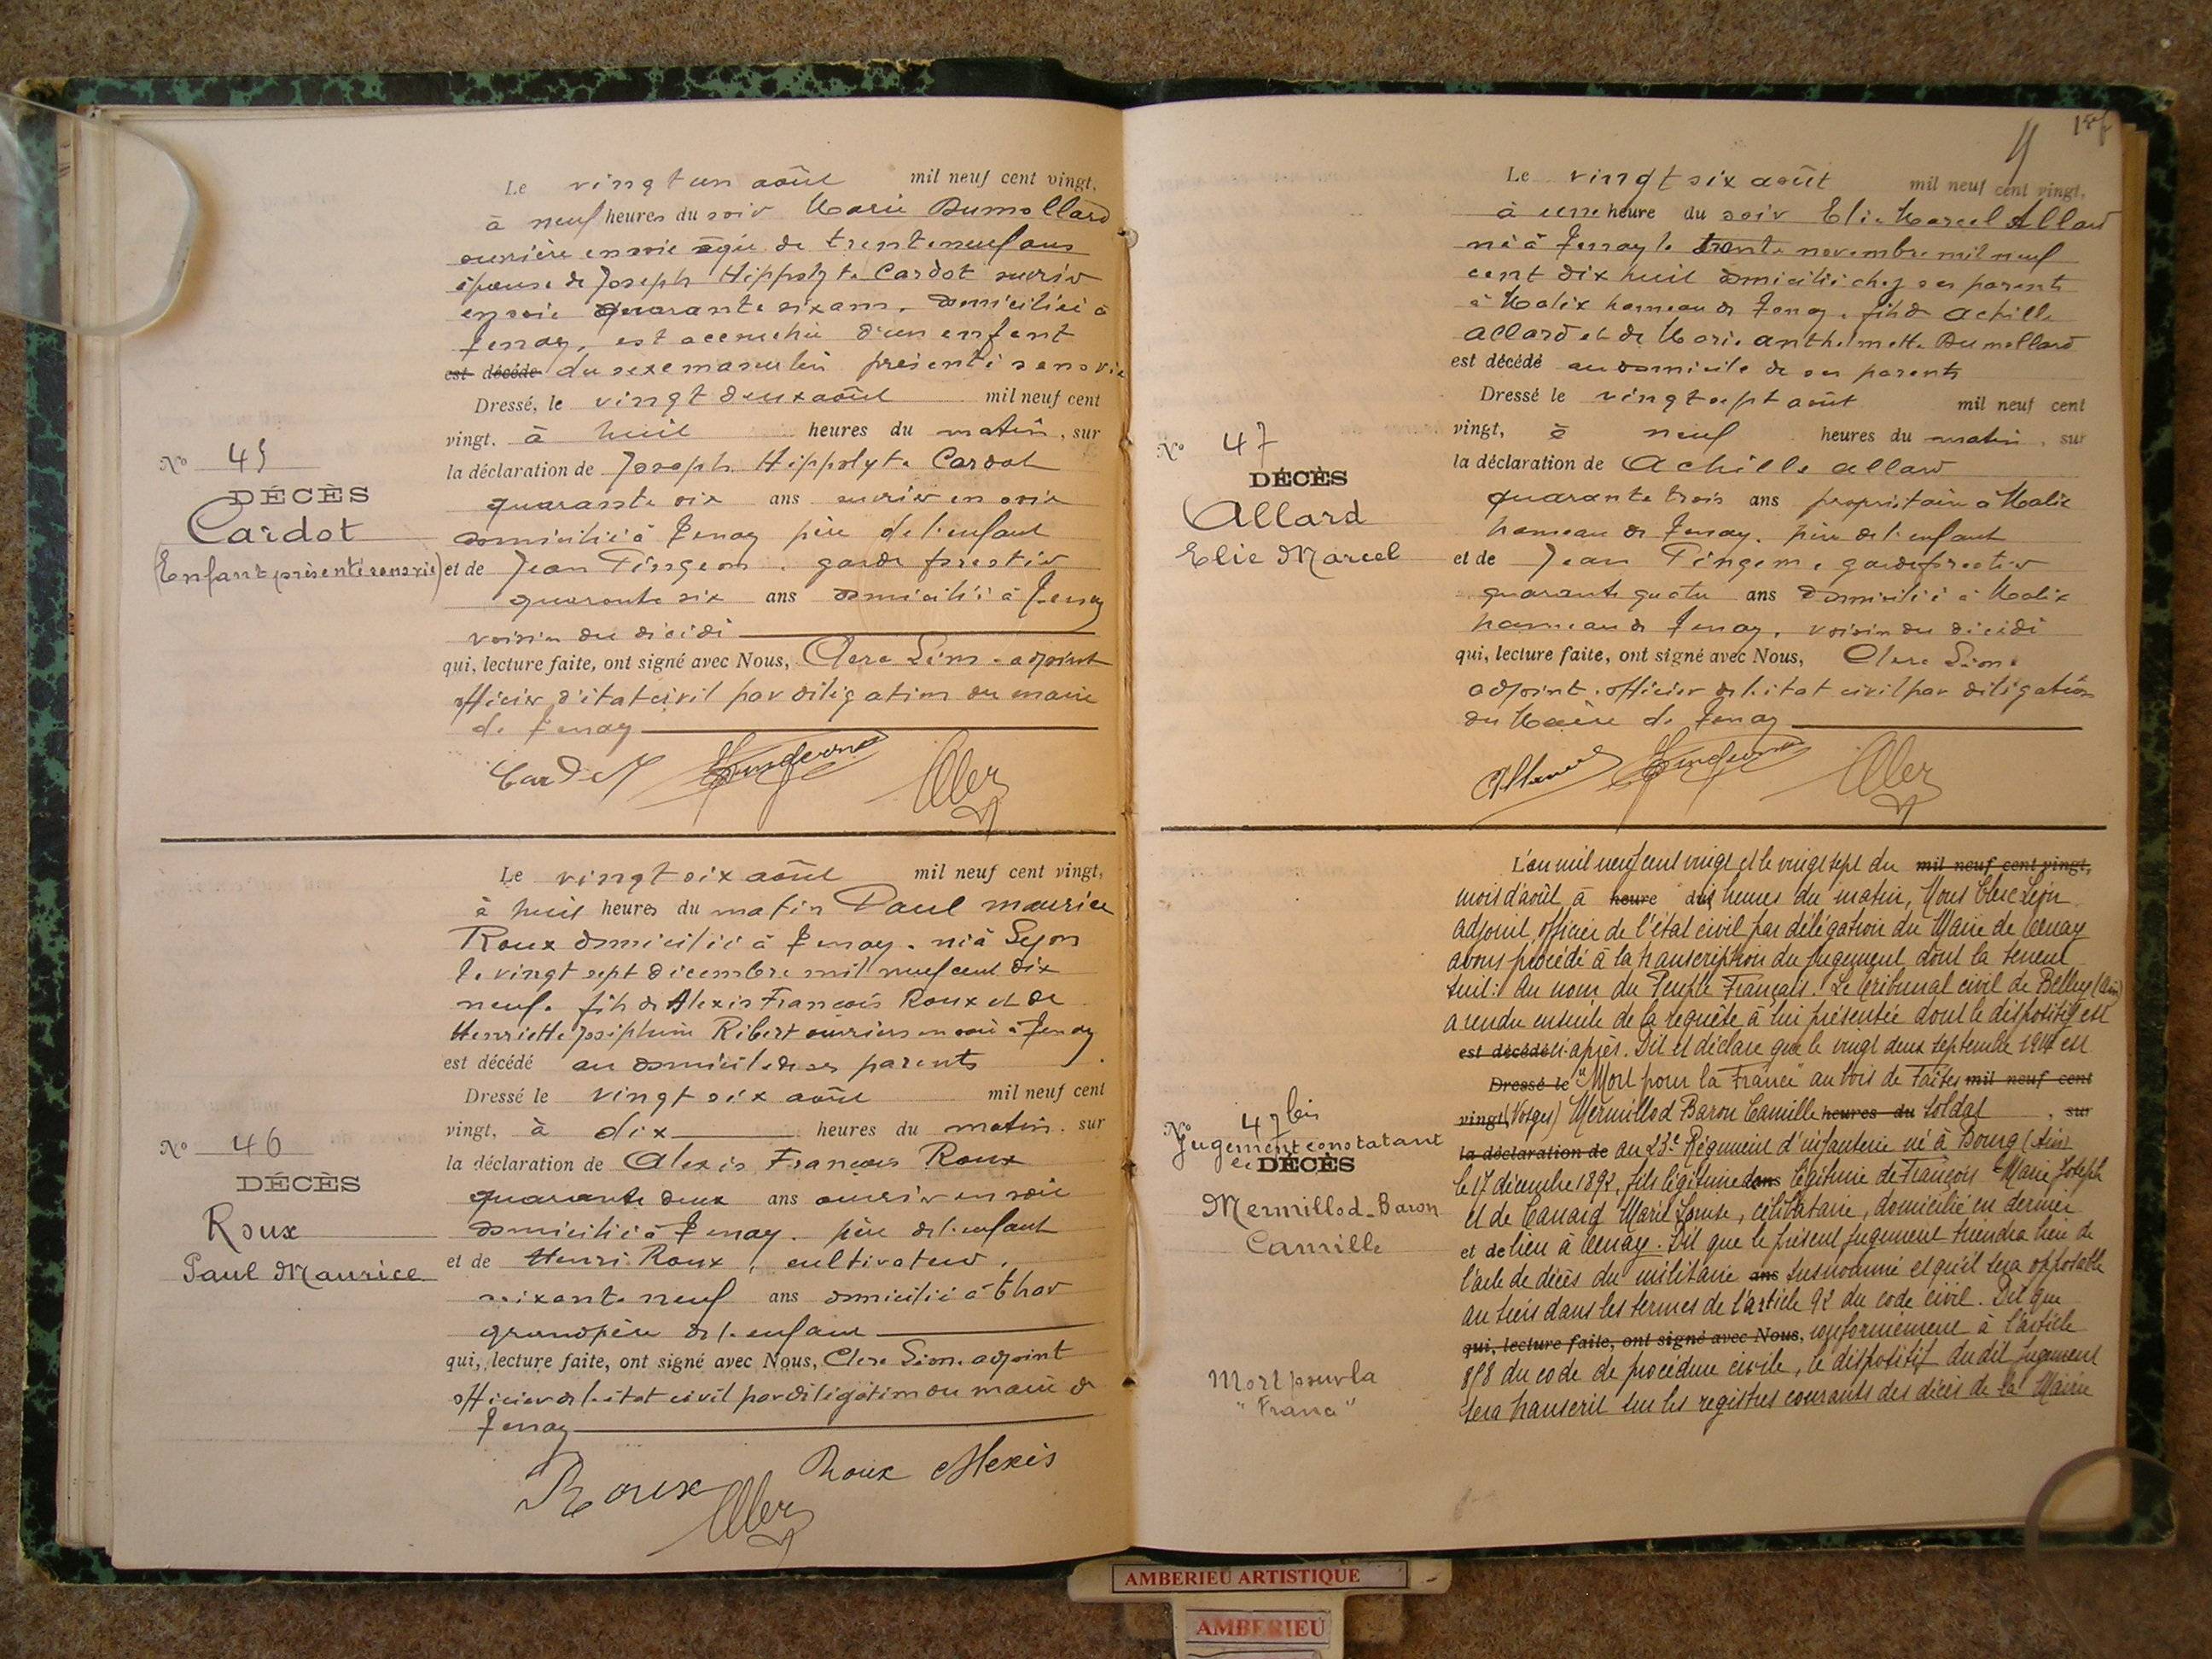 Le vingt un août mil neuf cent vingt,
à neuf heures du soir Marie Dumollard
ouvrière en soie agée de trente neuf ans
épouse de Joseph Hippolyte Cardot ouvrier
en soie quarante six ans, domiciliée à
Tenay, est accouchée d'un enfant
est décédé du sexe masculin présenté sans vie
Dressé, le vingt deux août mil neuf cent
vingt, à huit heures du matin, sur
la déclaration de Joseph Hippolyte Cardot
quarante six ans ouvrier en soie
domicilié à Tenay père de l'enfant
et de Jean Pingeon, garde forestier
quarante six ans domicilié à Tenay
voisin du décédé
qui, lecture faite, ont signé avec Nous, Clerc Léon adjoint
officier d'état civil par délégation du maire
de Tenay
Nº 45
DÉCÈS
Cardot
(Enfant présenté sans vie)
Le vingt six août mil neuf cent vingt,
à huit heures du matin Paul Maurice
Roux domicilié à Tenay. né à Lyon
le vingt sept décembre mil neuf cent dix
neuf. fils de Alexis François Roux et de
Henriette Joséphine Ribert ouvriers en soie à Tenay
est décédé au domicile de ses parents
Dressé le vingt six août mil neuf cent
vingt, à dix heures du matin, sur
la déclaration de Alexis François Roux
quarante deux ans ouvrier en soie
domicilié à Tenay. père de l'enfant
et de Henri Roux, cultivateur,
soixante neuf ans domicilié à
grand père de l'enfant
qui, lecture faite, ont signé avec Nous, Clerc Léon adjoint
officier de l'état civil par délégation du maire de
Tenay
Roux Roux Alexis
Nº 46
DÉCÈS
Roux
Paul Maurice
Le vingt six août mil neuf cent vingt,
à une heure du soir Elie Marcel Allard
né à Tenay le trente novembre mil neuf
cent dix huit domicilié chez ses parents
à Malix hameau de Tenay, fils de Achille
Allard et de Marie Anthelmette Dumollard
est décédé au domicile de ses parents
Dressé le vingt sept août mil neuf cent
vingt, à neuf heures du matin, sur
la déclaration de Achille Allard
quarante trois ans propriétaire à Malix
hameau de Tenay. père de l'enfant
et de Jean Pingeon, garde forestier
quarante quatre ans domicilié à Malix
hameau de Tenay, voisin du décédé
qui, lecture faite, ont signé avec Nous, Clerc Léon
adjoint. officier de l'état civil par délégation
du Maire de Tenay
Nº 47
DÉCÈS
Allard
Elie Marcel
L'an mil neuf cent vingt et le vingt sept du mil neuf cent vingt,
mois d'août, à heure dix heures du matin, Nous Clerc Léon
adjoint, officier de l'état civil par délégation du Maire de Tenay
avons procédé à la transcription du jugement dont la teneur
suit: Au nom du Peuple Français. Le tribunal civil de Belley (Ain)
a rendu ensuite de la requête à lui présentée dont le dispositif est
est décédé ci-après. Dit et déclare que le vingt deux septembre 1914 est
Dressé le "Mort pour la France" au bois de Faîtes mil neuf cent
vingt, (Vosges) Mermillod Baron Camille heures du soldat, sur
la déclaration de au 23e Régiment d'infanterie né à Bourg (Ain)
le 17 décembre 1892, fils légitime dans légitime de François Marie Joseph
et de Canard Marie Louise, célibataire, domicilié en dernier
et de lieu à Tenay. Dit que le présent jugement tiendra lieu de
l'acte de décès du militaire ans susnommé et qu'il sera opposable
au tiers dans les termes de l'article 92 du code civil. Dit que
qui, lecture faite, ont signé avec Nous, conformément à l'article
858 du code de procédure civile, le dispositif du dit jugement
sera transcrit sur les registres courants des décès de la Mairie
Nº 47 bis
Jugement constatant
le DÉCÈS
Mermillod-Baron
Camille
Mort pour la
"France"
AMBERIEU ARTISTIQUE
AMBERIEU